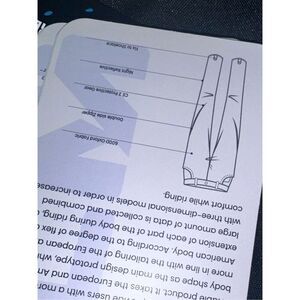 users with a more
product. It takes the European and
body shape as the main design prototype,
more in line with the tailoring of the European
American body. According to the degree of flex
extension of each part of the body during riding,
large amount of data is collected and combined
with three-dimensional models in order to increase
comfort while riding.
600D Oxford Fabric
Double side Zipper
Protective Gear
Night Reflective
Fix to Shoelace